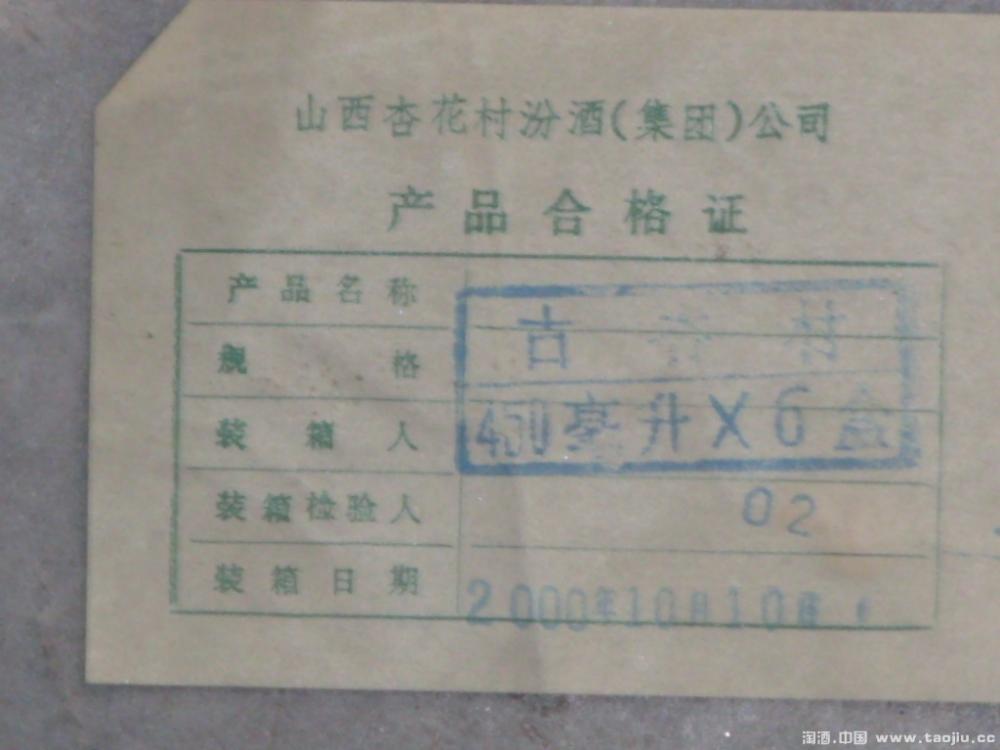 山西杏花村汾酒(集团)公司
产品合格证
产品名称
古
规格
450毫升X6盒
装箱人
装箱检验人 02
装箱日期 2000年10月10
淘酒.中国 www.taojiu.cc